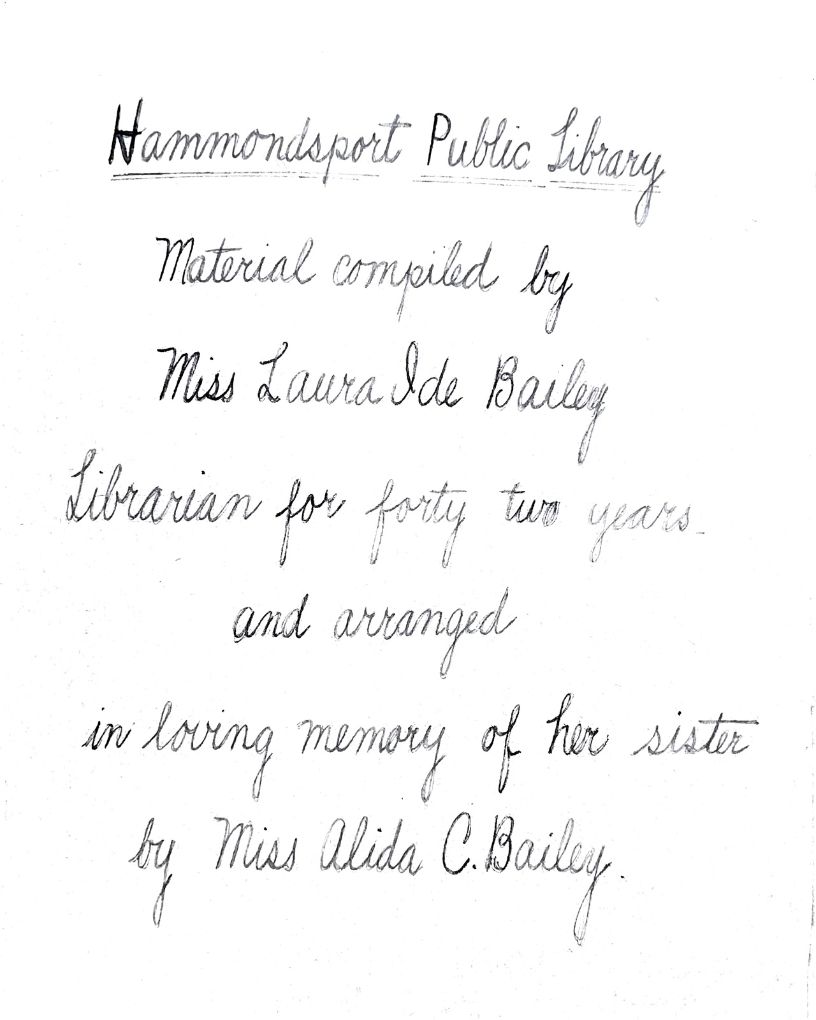 Hammondsport Public Library
Material compiled by
Miss Laura Ide Bailey
Librarian for forty two years
and arranged
in loving memory of her sister
by Miss Alida C. Bailey.